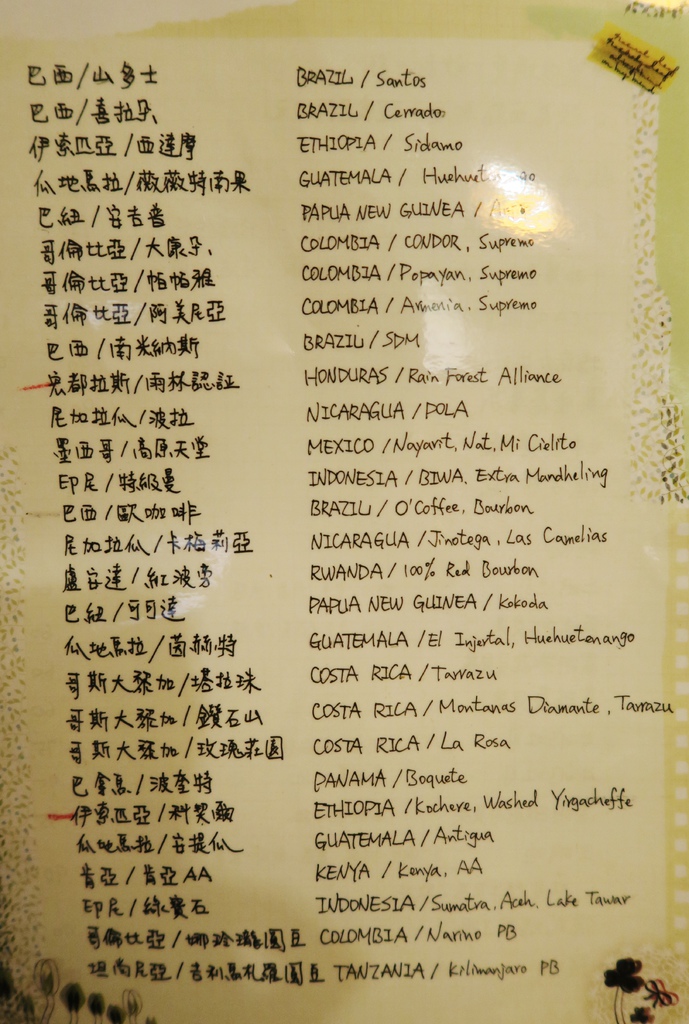 巴西/山多士 BRAZIL / Santos
巴西/喜拉朵 BRAZIL / Cerrado
伊索匹亞/西達摩 ETHIOPIA / Sidamo
瓜地馬拉/薇薇特南果 GUATEMALA / Huehuetenango
巴紐/安吉普 PAPUA NEW GUINEA /
哥倫比亞/大康朵 COLOMBIA / CONDOR, Supremo
哥倫比亞/帕帕雅 COLOMBIA / Popayan, Supremo
哥倫比亞/阿美尼亞 COLOMBIA / Armenia, Supremo
巴西/南米納斯 BRAZIL / SDM
宏都拉斯/雨林認証 HONDURAS / Rain Forest Alliance
尼加拉瓜/波拉 NICARAGUA / POLA
墨西哥/高原天堂 MEXICO / Nayarit, Nat, Mi Cielito
印尼/特級曼 INDONESIA / BIWA, Extra Mandheling
巴西/歐咖啡 BRAZIL / O'Coffee, Bourbon
尼加拉瓜/卡梅莉亞 NICARAGUA / Jinotega, Las Camelias
盧安達/紅波旁 RWANDA / 100% Red Bourbon
巴紐/可可達 PAPUA NEW GUINEA / Kokoda
瓜地馬拉/茵赫特 GUATEMALA / El Injertal, Huehuetenango
哥斯大黎加/塔拉珠 COSTA RICA / Tarrazu
哥斯大黎加/鑽石山 COSTA RICA / Montanas Diamante, Tarrazu
哥斯大黎加/玫瑰莊園 COSTA RICA / La Rosa
巴拿馬/波奎特 PANAMA / Boquete
伊索匹亞/科契爾 ETHIOPIA / Kochere, Washed Yirgacheffe
瓜地馬拉/安提瓜 GUATEMALA / Antigua
肯亞/肯亞AA KENYA / Kenya, AA
印尼/綠寶石 INDONESIA / Sumatra, Aceh, Lake Tawar
哥倫比亞/娜玲瓏圓豆 COLOMBIA / Narino PB
坦尚尼亞/吉利馬札羅圓豆 TANZANIA / Kilimanjaro PB